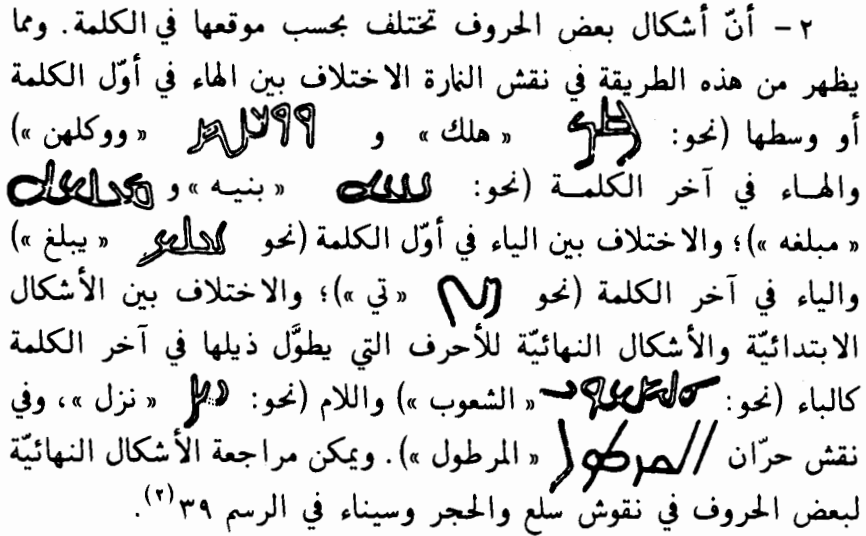 ٢ – أنّ أشكال بعض الحروف تختلف بحسب موقعها في الكلمة. ومما
يظهر من هذه الطريقة في نقش النمارة الاختلاف بين الهاء في أوّل الكلمة
أو وسطها (نحو: « هلك » و « ووكلهن »)
والهـاء في آخر الكلمـة (نحو: « بنيـه » و
« مبلغه »)؛ والاختلاف بين الياء في أوّل الكلمة (نحو « يبلغ »)
والياء في آخر الكلمة (نحو « تي »)؛ والاختلاف بين الأشكال
الابتدائيّة والأشكال النهائيّة للأحرف التي يطوَّل ذيلها في آخر الكلمة
كالباء (نحو: « الشعوب ») واللام (نحو: « نزل »، وفي
نقش حرّان « المرطول »). ويمكن مراجعة الأشكال النهائيّة
لبعض الحروف في نقوش سلع والحجر وسيناء في الرسم ٣٩(٢).